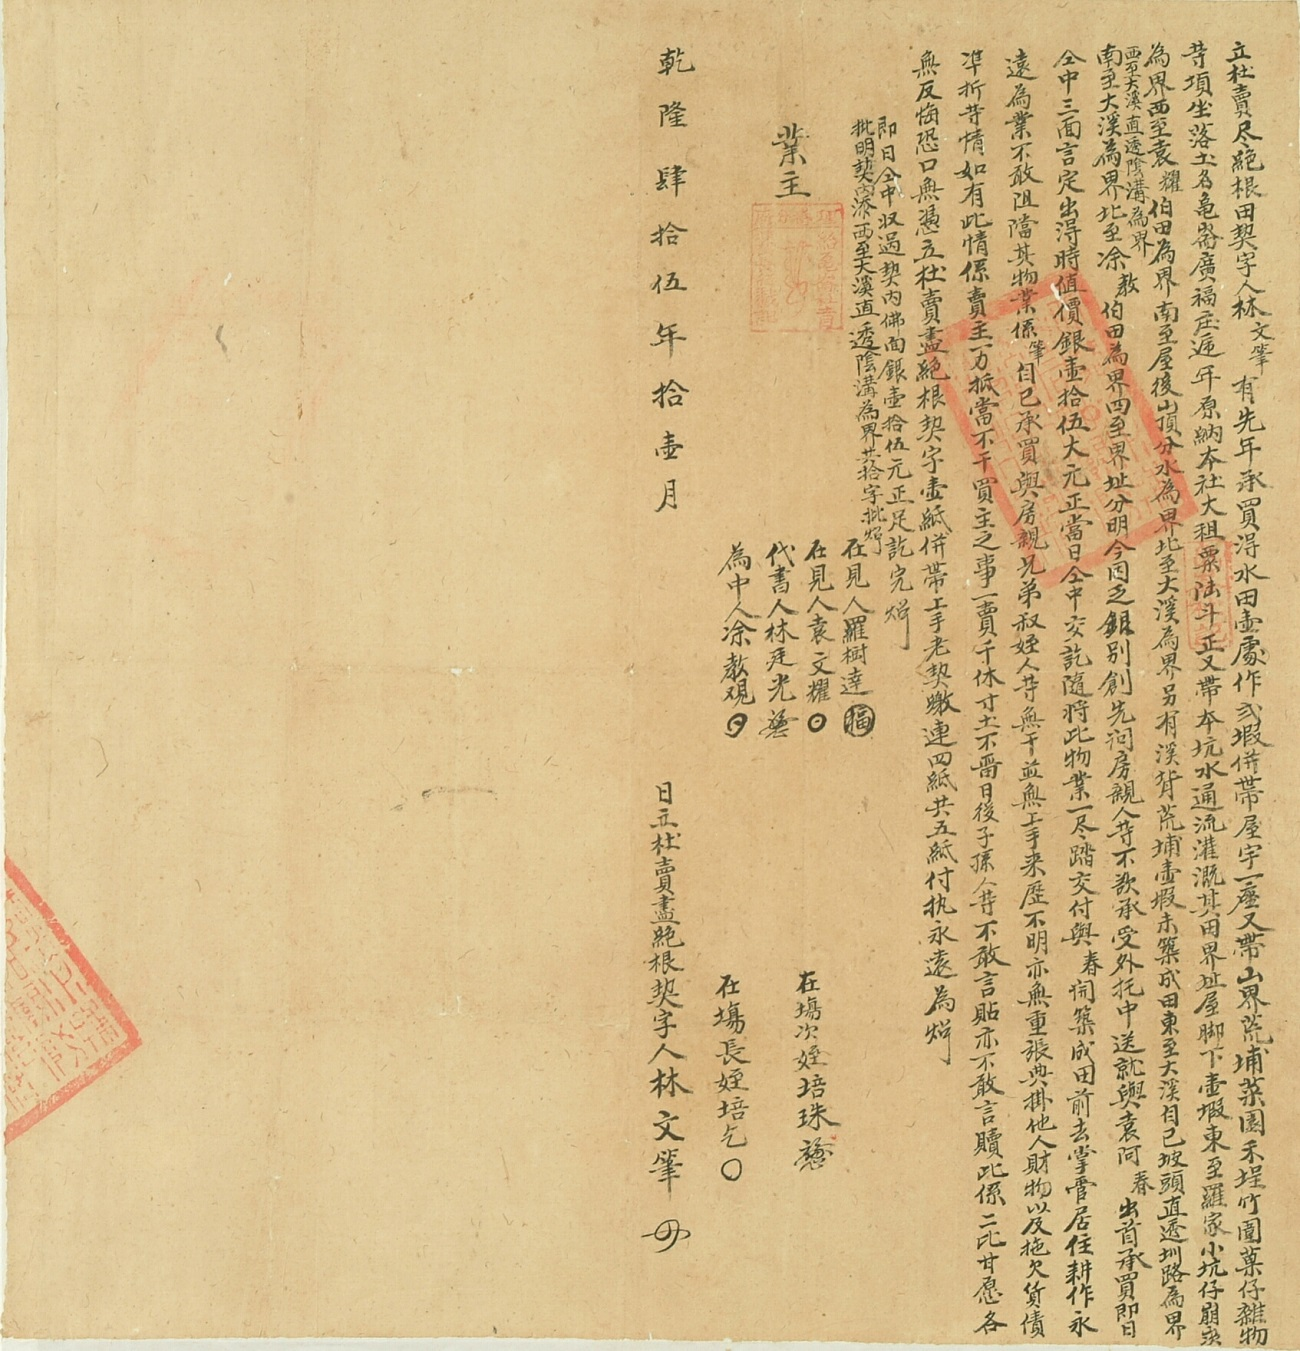 立杜賣尽絕根田契字人林文筆有先年承買淂水田壺處作弍塅併帶屋宇一座又帶山界荒埔菜園禾埕竹圍菓仔雜物
等項坐落土名龜崙廣福庄遞年原納本社大租粟陆斗正又帶本坑水通流灌溉其田界址屋脚下壺塅東至羅家小坑仔崩崁
為界西至袁耀伯田為界南至屋後山頂分水為界北至大溪為界另有溪背荒埔壺塅未築成田東至大溪自己坡頭直透圳路為界
西至大溪直透陰溝為界
南至大溪為界北至凃教伯田為界四至界址分明今因乏銀別創先问房親人等不欲承受外托中送就與袁阿春出首承買即日
仝中三面言定出淂時值價銀壺拾伍大元正當日仝中交訖隨將此物業一尽踏交付與春開築成田前去掌管居住耕作永
遠為業不敢阻擋其物業係筆自己承買與房親兄弟叔姪人等無干並無上手來歷不明亦無重張典掛他人財物以及拖欠貨債
準折等情如有此情係賣主一力抵當不干買主之事一賣千休寸土不留日後子孫人等不敢言貼亦不敢言贖此係二比甘愿各
無反悔恐口無憑立杜賣盡絕根契字壺紙併帶上手老契繳連四紙共五紙付执永遠為炤
即日仝中収過契內佛面銀壺拾伍元正足訖完炤
批明契內添西至大溪直透陰溝為界共拾字批炤
業主
在見人羅樹達
在見人袁文耀
代書人林廷光
為中人凃教观
在塲次姪培珠
在塲長姪培乞
乾隆肆拾伍年拾壺月 日立杜賣盡絕根契字人林文筆